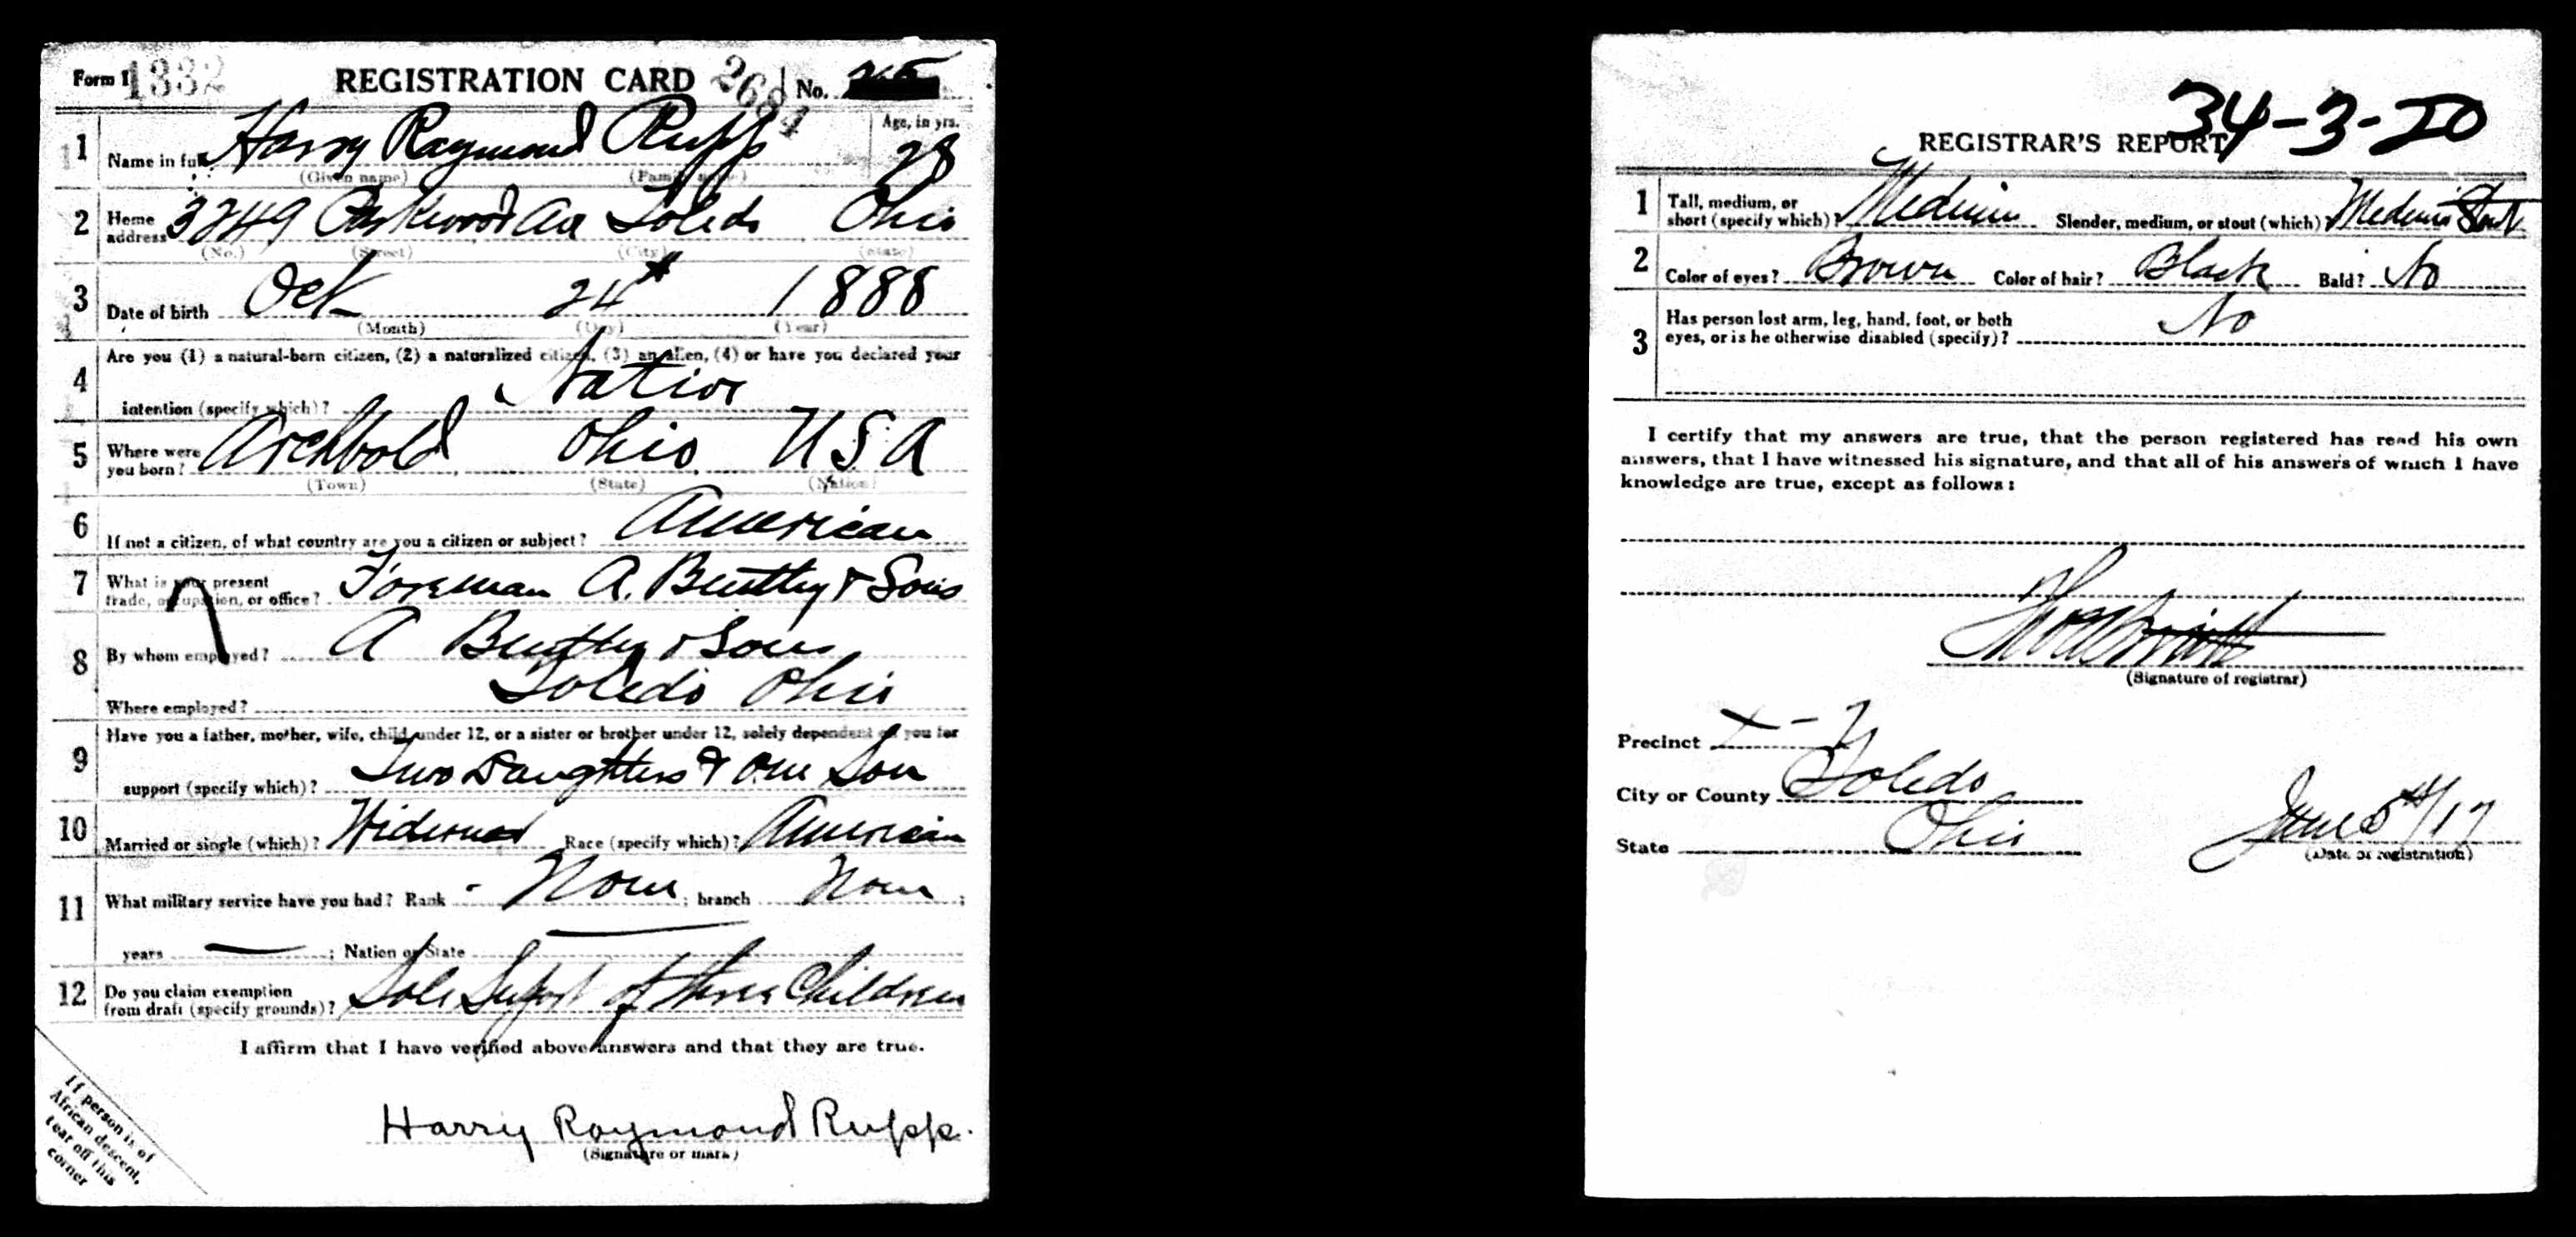 Form 1 1332 REGISTRATION CARD 2684 No.
1 Name in full Harry Raymond Rupp Age, in yrs. 28
(Given name) (Family name)
2 Home address 3249 Parkwood Ave Toledo Ohio
(No.) (Street) (City) (State)
3 Date of birth Oct 24th 1888
(Month) (Day) (Year)
4 Are you (1) a natural-born citizen, (2) a naturalized citizen, (3) an alien, (4) or have you declared your
intention (specify which)? Native
5 Where were you born? Archbold Ohio USA
(Town) (State) (Nation)
6 If not a citizen, of what country are you a citizen or subject? American
7 What is your present trade, occupation, or office? Foreman A. Bentley & Sons
8 By whom employed? A Bentley & Sons
Where employed? Toledo Ohio
9 Have you a father, mother, wife, child under 12, or a sister or brother under 12, solely dependent on you for
support (specify which)? Two Daughters & One Son
10 Married or single (which)? Widowed Race (specify which)? American
11 What military service have you had? Rank None; branch None;
years —; Nation or State —
12 Do you claim exemption from draft (specify grounds)? Sole Suport of three Children
I affirm that I have verified above answers and that they are true.
Harry Raymond Rupp.
(Signature or mark)
If person is of
African descent,
tear off this
corner
34-3-20
REGISTRAR'S REPORT
1 Tall, medium, or short (specify which)? Medium Slender, medium, or stout (which) Medium Stout
2 Color of eyes? Brown Color of hair? Black Bald? No
3 Has person lost arm, leg, hand, foot, or both
eyes, or is he otherwise disabled (specify)? No
I certify that my answers are true, that the person registered has read his own
answers, that I have witnessed his signature, and that all of his answers of which I have
knowledge are true, except as follows:
(Signature of registrar)
Precinct
City or County Toledo
State Ohio June 5th/17
(Date of registration)